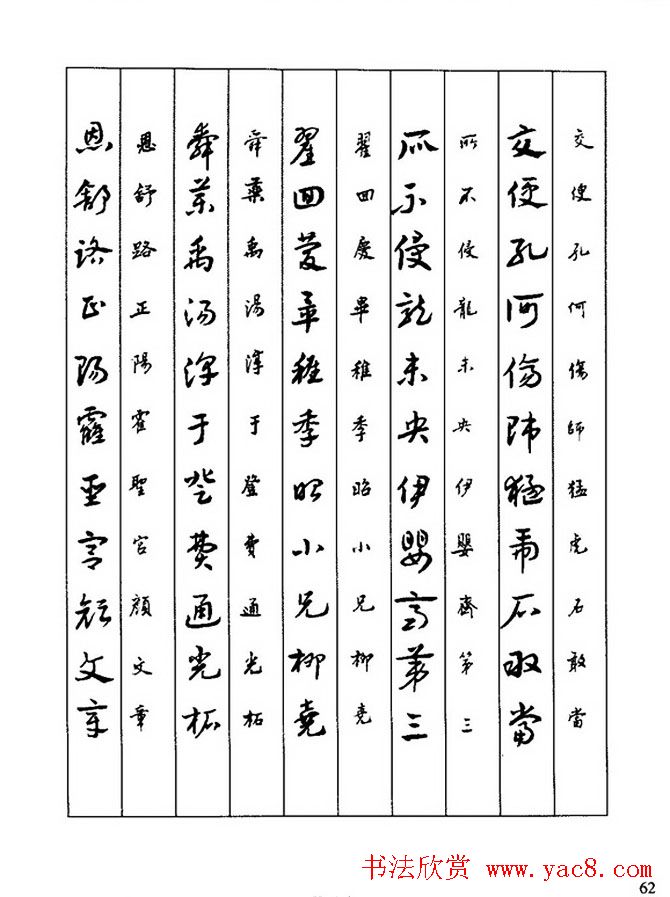 交便孔何傷師猛虎石敢當
交便孔何傷師猛虎石敢當
所不侵龍未央伊嬰齊第三
所不侵龍未央伊嬰齊第三
翟回慶畢稚季昭小兄柳堯
翟回慶畢稚季昭小兄柳堯
舜藥禹湯淳于登費通光柘
舜藥禹湯淳于登費通光柘
恩舒路正陽霍聖宮顏文章
恩舒路正陽霍聖宮顏文章
书法欣赏 www.yac8.com
62